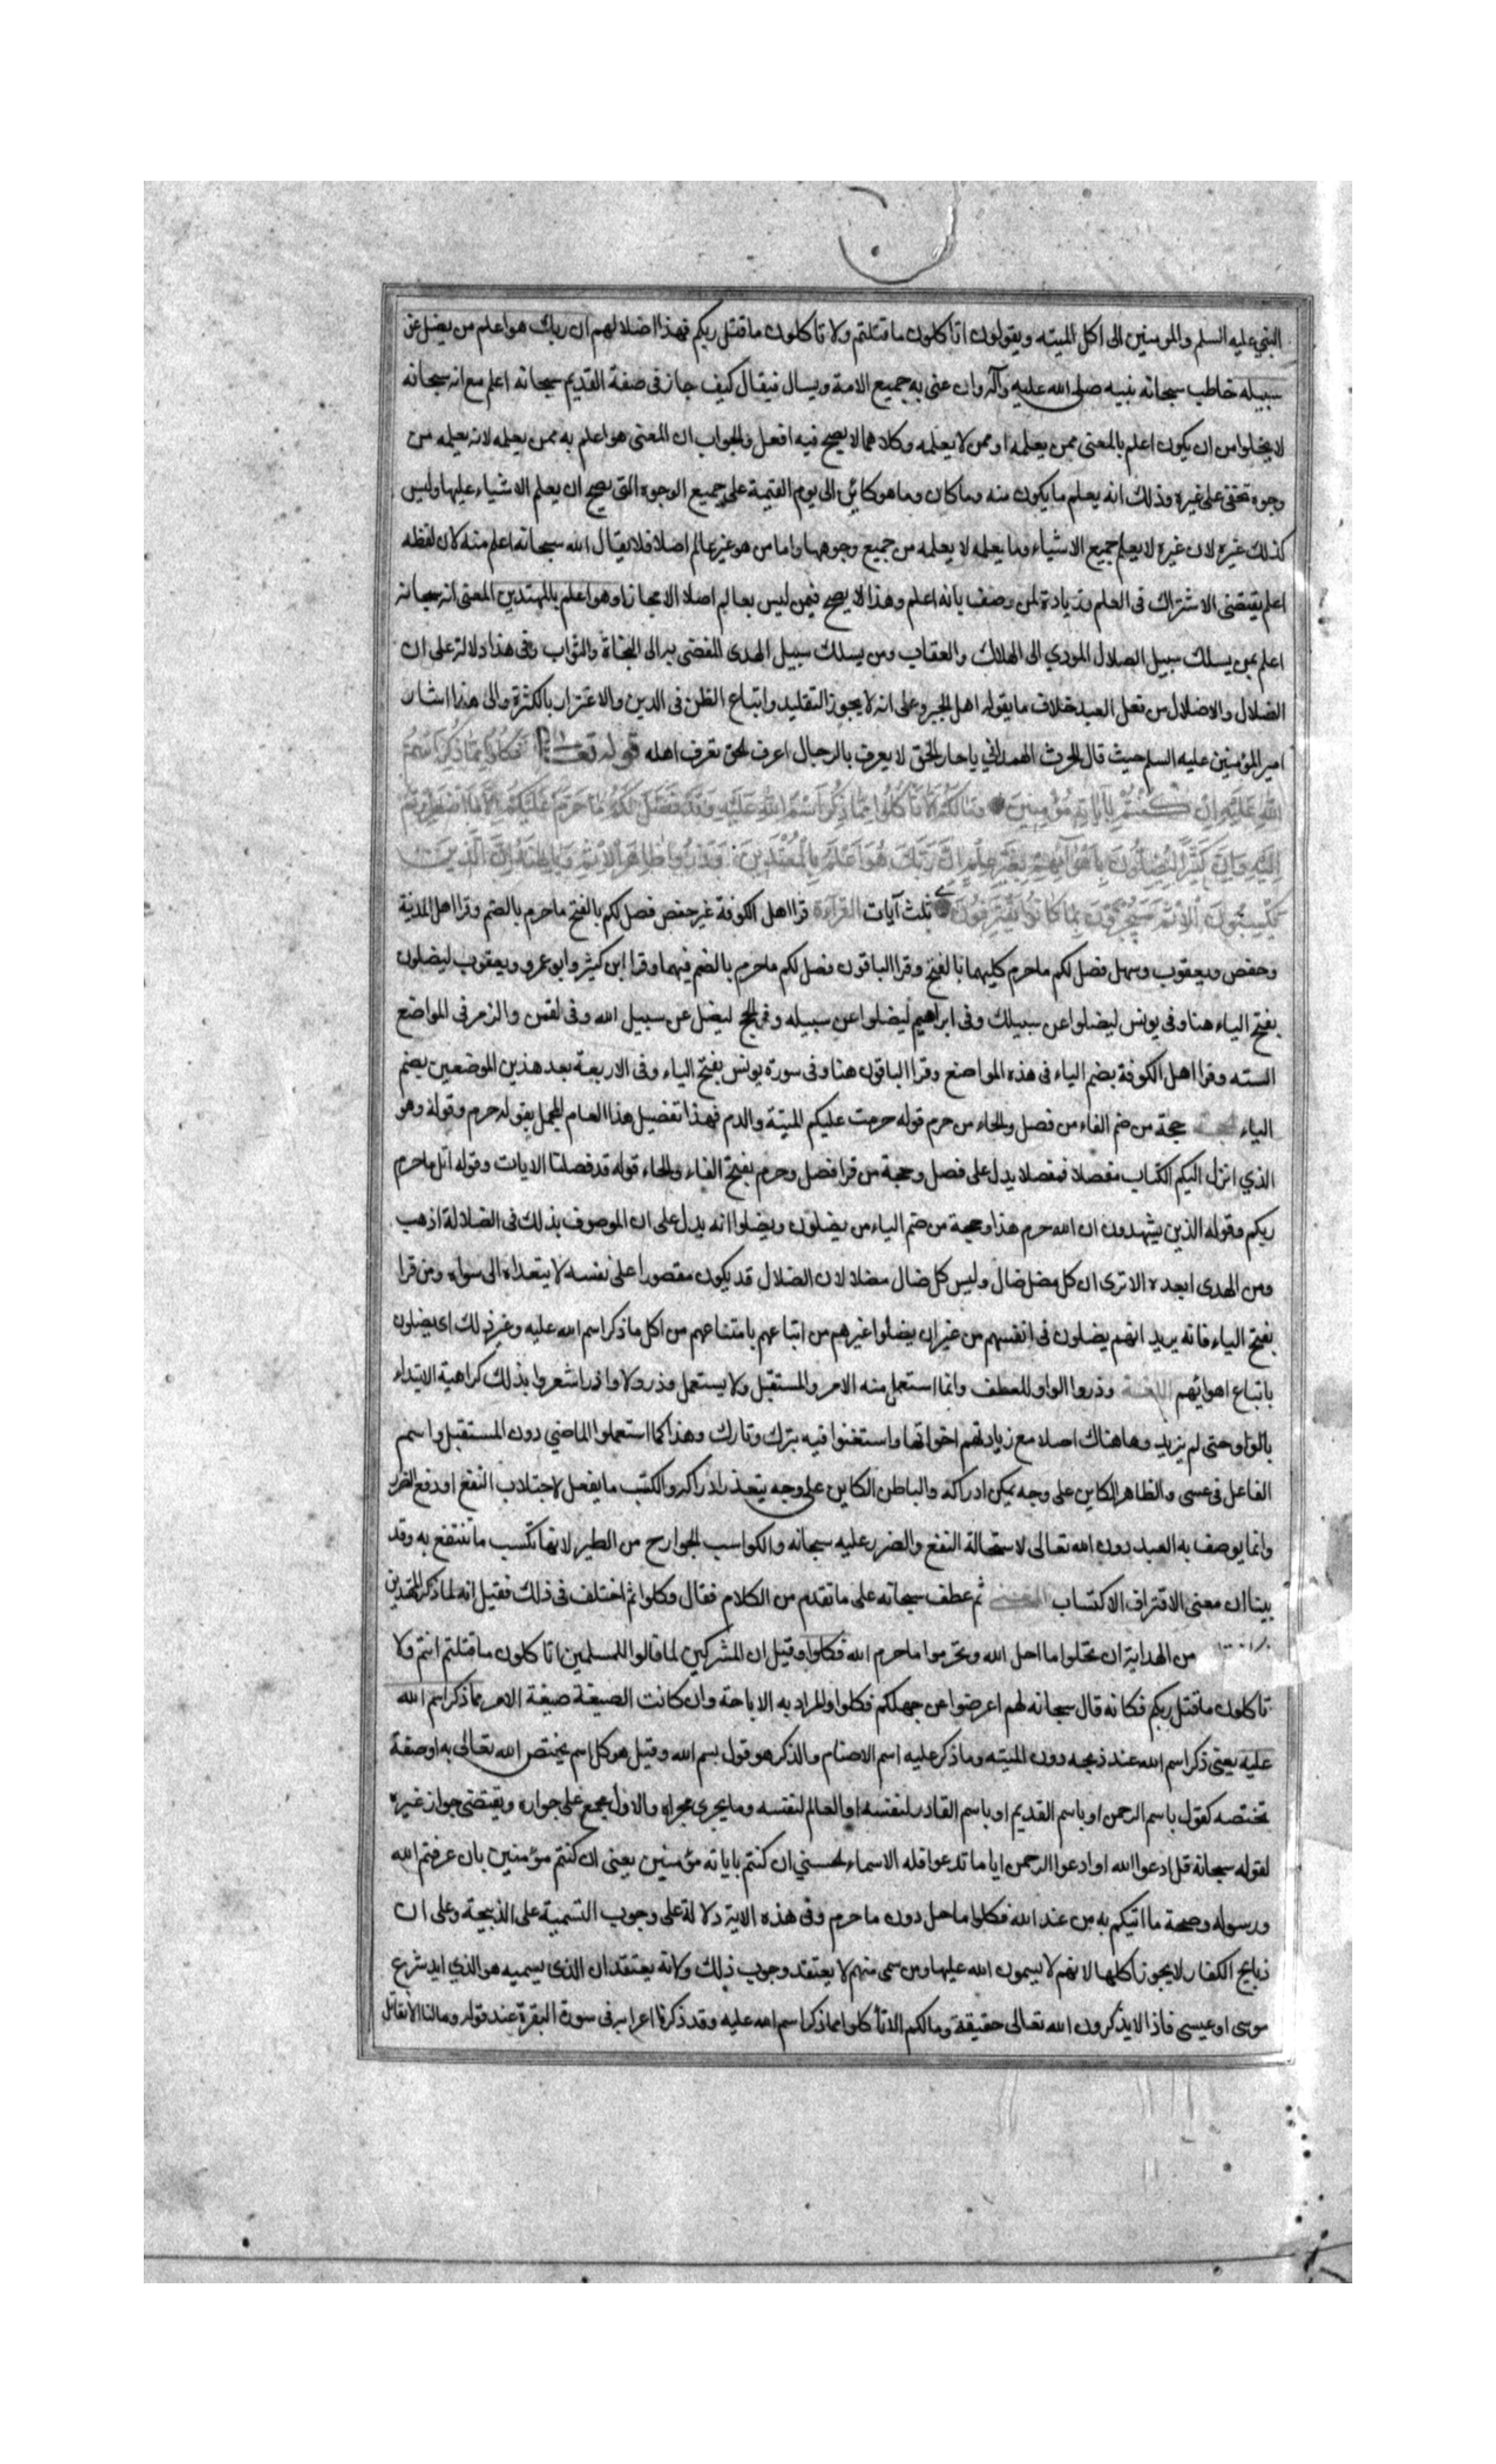 النبي عليه السلم والمومنين الى اكل الميته ويقولون اتاكلون ما قتلتم ولا تاكلون ما قتل ربكم فهذا اضلالهم ان ربك هو اعلم من يضل عن
سبيله خاطب سبحانه نبيه صلى الله عليه وآله وان عنى به جميع الامة ويسال فيقال كيف جاز فى صفة القديم سبحانه اعلم مع انه سبحانه
لا يخلوا من ان يكون اعلم بالمعنى ممن يعلمه او ممن لا يعلمه وكلاهما لا يصح فيه افعل والجواب ان المعنى هو اعلم به ممن يعلمه لانه يعلمه من
وجوه تخفى على غيره وذلك انه يعلم ما يكون منه وما كان وما هو كاين الى يوم القيمة على جميع الوجوه التى يصح ان يعلم الاشياء عليها وليس
كذلك غيره لان غيره لا يعلم جميع الاشياء وما يعلمه لا يعلمه من جميع وجوهها واما من هو غير عالم اصلا فلا يقال الله سبحانه اعلم منه لان لفظه
اعلم يقتضى الاشتراك فى العلم وزيادة لمن وصف بانه اعلم وهذا لا يصح فيمن ليس بعالم اصلا الا مجازا وهو اعلم بالمهتدين المعنى انه سبحانه
اعلم بمن يسلك سبيل الضلال المودي الى الهلاك والعقاب ومن يسلك سبيل الهدى المفضى به الى النجاة والثواب وفى هذا دلالة على ان
الضلال والاضلال من فعل العبد خلاف ما يقوله اهل الجبر وعلى انه لا يجوز التقليد واتباع الظن فى الدين والاغترار بالكثرة والى هذا اشار
امير المؤمنين عليه السلم حيث قال للحرث الهمداني يا حار الحق لا يعرف بالرجال اعرف الحق تعرف اهله قوله تعالى فكلوا مما ذكر اسم
الله عليه ان كنتم بآياته مؤمنين وما لكم الا تاكلوا مما ذكر اسم الله عليه وقد فصل لكم ما حرم عليكم الا ما اضطررتم
اليه وان كثيرا ليضلون باهوائهم بغير علم ان ربك هو اعلم بالمعتدين وذروا ظاهر الاثم وباطنه ان الذين
يكسبون الاثم سيجزون بما كانوا يقترفون ثلث آيات القراءة قرا اهل الكوفة غير حفص فصل لكم بالفتح ما حرم بالضم وقرا اهل المدينة
وحفص ويعقوب وسهل فصل لكم ما حرم كليهما بالفتح وقرا الباقون فصل لكم ما حرم بالضم فيهما وقرا ابن كثير وابو عمرو ويعقوب ليضلون
بفتح الياء هنا وفى يونس ليضلوا عن سبيلك وفى ابراهيم ليضلوا عن سبيله وفى الحج ليضل عن سبيل الله وفى لقمن والزمر فى المواضع
السته وقرا اهل الكوفة بضم الياء فى هذه المواضع وقرا الباقون هنا وفى سورة يونس بفتح الياء وفى الاربعة بعد هذين الموضعين بضم
الياء الحجة حجة من ضم الفاء من فصل والحاء من حرم قوله حرمت عليكم الميتة والدم فهذا تفصيل هذا العام المجمل بقوله حرم وقوله وهو
الذي انزل اليكم الكتاب مفصلا فمفصلا يدل على فصل وحجة من قرا فصل وحرم بفتح الفاء والحاء قوله قد فصلنا الايات وقوله اتل ما حرم
ربكم وقوله الذين يشهدون ان الله حرم هذا وحجة من ضم الياء من يضلون ويضلوا انه يدل على ان الموصوف بذلك فى الضلالة اذهب
ومن الهدى ابعد الا ترى ان كل مضل ضال وليس كل ضال مضلا لان الضلال قد يكون مقصورا على نفسه لا يتعداه الى سواه ومن قرا
بفتح الياء فانه يريد انهم يضلون فى انفسهم من غير ان يضلوا غيرهم من اتباعهم بامتناعهم من اكل ما ذكر اسم الله عليه وغير ذلك اى يضلون
باتباع اهوائهم اللغة وذروا الواو للعطف وانما استعمل منه الامر والمستقبل ولا يستعمل وذر ولا واذر اشعروا بذلك كراهية الابتداء
بالواو حتى لم يزيد وها هناك اصلا مع زيادتهم اخواتها واستغنوا فيه بترك وتارك وهذا كما استعملوا الماضي دون المستقبل واسم
الفاعل فى عسى والظاهر الكاين على وجه يمكن ادراكه والباطن الكاين على وجه يتعذر ادراكه والكسب ما يفعل لاجتلاب النفع او دفع الضرر
وانما يوصف به العبد دون الله تعالى لاستحالة النفع والضرر عليه سبحانه والكواسب الجوارح من الطير لانها تكسب ما تنتفع به وقد
بينا ان معنى الاقتراف الاكتساب المعنى ثم عطف سبحانه على ما تقدم من الكلام فقال وكلوا ثم اختلف فى ذلك فقيل انه لما ذكر المهتدين
من الهداية ان تحلوا ما احل الله وتحرموا ما حرم الله فكلوا وقيل ان المشركين لما قالوا للمسلمين اتاكلون ما قتلتم انتم ولا
تاكلون ما قتل ربكم فكانه قال سبحانه لهم اعرضوا عن جهلكم فكلوا والمراد به الاباحة وان كانت الصيغة صيغة الامر مما ذكر اسم الله
عليه يعنى ذكر اسم الله عند ذبحه دون الميته وما ذكر عليه اسم الاصنام والذكر هو قول بسم الله وقيل هو كل اسم يختص الله تعالى به او صفة
تختصه كقول باسم الرحمن او باسم القديم او باسم القادر لنفسه او العالم لنفسه وما يجرى مجراه والاول مجمع على جوازه ويقتضى جواز غيره
لقوله سبحانه قل ادعوا الله او ادعوا الرحمن ايا ما تدعوا فله الاسماء الحسنى ان كنتم باياته مؤمنين يعنى ان كنتم مؤمنين بان عرفتم الله
ورسوله وصحة ما اتيكم به من عند الله فكلوا ما حل دون ما حرم وفى هذه الاية دلالة على وجوب التسمية على الذبيحة وعلى ان
ذبايح الكفار لا يجوز اكلها لانهم لا يسمون الله عليها ومن سمى منهم لا يعتقد وجوب ذلك ولانه يعتقد ان الذى يسميه هو الذي ابد شرع
موسى او عيسى فاذا لا يذكرون الله تعالى حقيقة وما لكم الا تاكلوا مما ذكر اسم الله عليه وقد ذكرنا اعرابه فى سورة البقرة عند قوله وما لنا الا نقاتل